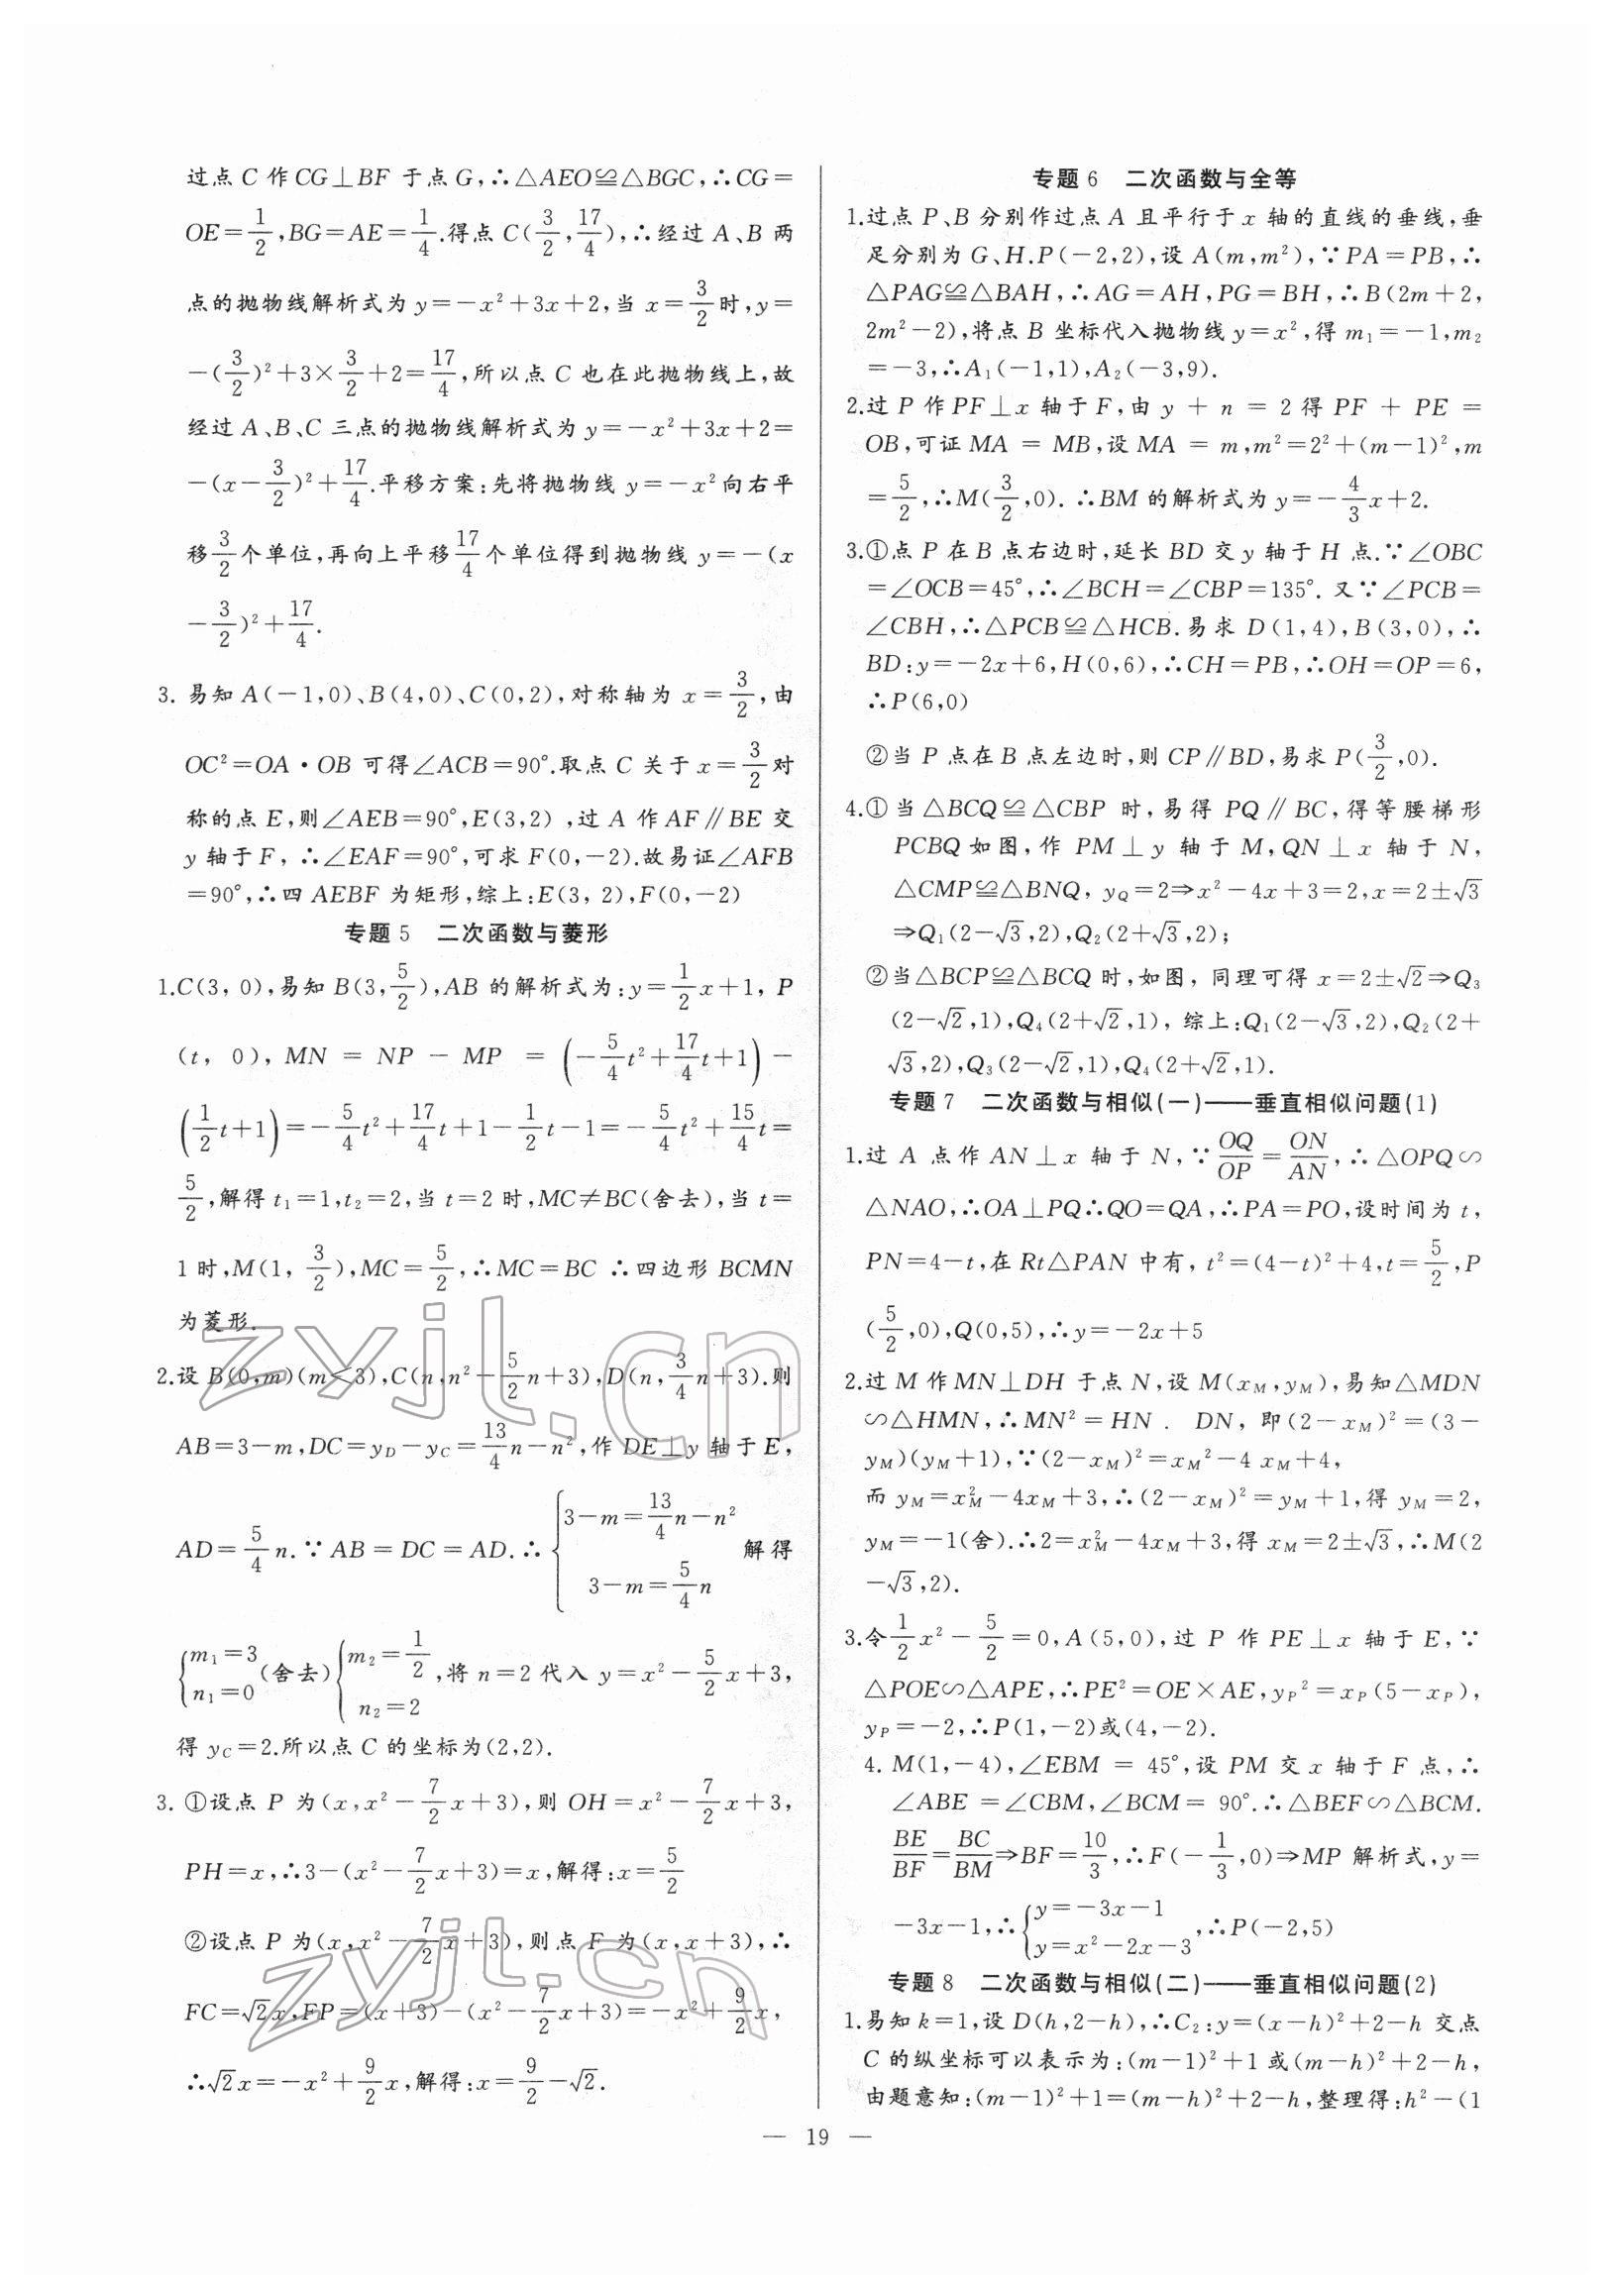 过点 C 作 CG⊥BF 于点 G,∴△AEO≌△BGC,∴CG=
OE=1/2,BG=AE=1/4.得点 C(3/2,17/4),∴经过 A、B 两
点的抛物线解析式为 y=-x²+3x+2,当 x=3/2时,y=
-(3/2)²+3×3/2+2=17/4,所以点 C 也在此抛物线上,故
经过 A、B、C 三点的抛物线解析式为 y=-x²+3x+2=
-(x-3/2)²+17/4.平移方案:先将抛物线 y=-x²向右平
移3/2个单位,再向上平移17/4个单位得到抛物线 y=-(x
-3/2)²+17/4.
3. 易知 A(-1,0)、B(4,0)、C(0,2),对称轴为 x=3/2,由
OC²=OA·OB 可得∠ACB=90°.取点 C 关于 x=3/2对
称的点 E,则∠AEB=90°,E(3,2),过 A 作 AF∥BE 交
y 轴于 F, ∴∠EAF=90°,可求 F(0,-2).故易证∠AFB
=90°,∴四 AEBF 为矩形,综上:E(3, 2),F(0,-2)
专题 5 二次函数与菱形
1.C(3, 0),易知 B(3,5/2),AB 的解析式为:y=1/2x+1, P
(t, 0), MN = NP - MP = (-5/4t²+17/4t+1)-
(1/2t+1)=-5/4t²+17/4t+1-1/2t-1=-5/4t²+15/4t=
5/2,解得 t₁=1,t₂=2,当 t=2 时,MC≠BC(舍去),当 t=
1 时,M(1, 3/2),MC=5/2,∴MC=BC ∴四边形 BCMN
为菱形.
2.设 B(0,m)(m<3),C(n,n²-5/2n+3),D(n,3/4n+3).则
AB=3-m,DC=y_D-y_C=13/4n-n²,作 DE⊥y 轴于 E,
AD=5/4n.∵AB=DC=AD.∴{3-m=13/4n-n² 3-m=5/4n 解得
{m₁=3 n₁=0(舍去){m₂=1/2 n₂=2,将 n=2 代入 y=x²-5/2x+3,
得 y_C=2.所以点 C 的坐标为(2,2).
3. ①设点 P 为(x,x²-7/2x+3),则 OH=x²-7/2x+3,
PH=x,∴3-(x²-7/2x+3)=x,解得:x=5/2
②设点 P 为(x,x²-7/2x+3),则点 F 为(x,x+3),∴
FC=√2x,FP=(x+3)-(x²-7/2x+3)=-x²+9/2x,
∴√2x=-x²+9/2x,解得:x=9/2-√2.
专题 6 二次函数与全等
1.过点 P、B 分别作过点 A 且平行于 x 轴的直线的垂线,垂
足分别为 G、H.P(-2,2),设 A(m,m²),∵PA=PB,∴
△PAG≌△BAH,∴AG=AH,PG=BH,∴B(2m+2,
2m²-2),将点 B 坐标代入抛物线 y=x²,得 m₁=-1,m₂
=-3,∴A₁(-1,1),A₂(-3,9).
2.过 P 作 PF⊥x 轴于 F,由 y + n = 2 得 PF + PE =
OB,可证 MA = MB,设 MA = m,m²=2²+(m-1)²,m
=5/2,∴M(3/2,0). ∴BM 的解析式为 y=-4/3x+2.
3.①点 P 在 B 点右边时,延长 BD 交 y 轴于 H 点.∵∠OBC
=∠OCB=45°,∴∠BCH=∠CBP=135°. 又∵∠PCB=
∠CBH,∴△PCB≌△HCB.易求 D(1,4),B(3,0),∴
BD:y=-2x+6,H(0,6),∴CH=PB,∴OH=OP=6,
∴P(6,0)
②当 P 点在 B 点左边时,则 CP∥BD,易求 P(3/2,0).
4.①当△BCQ≌△CBP 时,易得 PQ∥BC,得等腰梯形
PCBQ 如图,作 PM⊥y 轴于 M,QN⊥x 轴于 N,
△CMP≌△BNQ, y_Q=2⇒x²-4x+3=2,x=2±√3
⇒Q₁(2-√3,2),Q₂(2+√3,2);
②当△BCP≌△BCQ 时,如图, 同理可得 x=2±√2⇒Q₃
(2-√2,1),Q₄(2+√2,1), 综上:Q₁(2-√3,2),Q₂(2+
√3,2),Q₃(2-√2,1),Q₄(2+√2,1).
专题 7 二次函数与相似(一)——垂直相似问题(1)
1.过 A 点作 AN⊥x 轴于 N,∵OQ/OP=ON/AN,∴△OPQ∽
△NAO,∴OA⊥PQ∴QO=QA,∴PA=PO,设时间为 t,
PN=4-t,在 Rt△PAN 中有, t²=(4-t)²+4,t=5/2,P
(5/2,0),Q(0,5),∴y=-2x+5
2.过 M 作 MN⊥DH 于点 N,设 M(x_M,y_M),易知△MDN
∽△HMN,∴MN²=HN . DN, 即(2-x_M)²=(3-
y_M)(y_M+1),∵(2-x_M)²=x_M²-4 x_M+4,
而 y_M=x²_M-4x_M+3,∴(2-x_M)²=y_M+1,得 y_M=2,
y_M=-1(舍).∴2=x²_M-4x_M+3,得 x_M=2±√3,∴M(2
-√3,2).
3.令1/2x²-5/2=0,A(5,0),过 P 作 PE⊥x 轴于 E,∵
△POE∽△APE,∴PE²=OE×AE,y_P²=x_P(5-x_P),
y_P=-2,∴P(1,-2)或(4,-2).
4. M(1,-4),∠EBM = 45°,设 PM 交 x 轴于 F 点,∴
∠ABE=∠CBM,∠BCM= 90°.∴△BEF∽△BCM.
BE/BF=BC/BM⇒BF=10/3,∴F(-1/3,0)⇒MP 解析式,y=
-3x-1,∴{y=-3x-1 y=x²-2x-3,∴P(-2,5)
专题 8 二次函数与相似(二)——垂直相似问题(2)
1.易知 k=1,设 D(h,2-h),∴C₂:y=(x-h)²+2-h 交点
C 的纵坐标可以表示为:(m-1)²+1 或(m-h)²+2-h,
由题意知:(m-1)²+1=(m-h)²+2-h,整理得:h²-(1
— 19 —
zyjl.cn
zyjl.cn